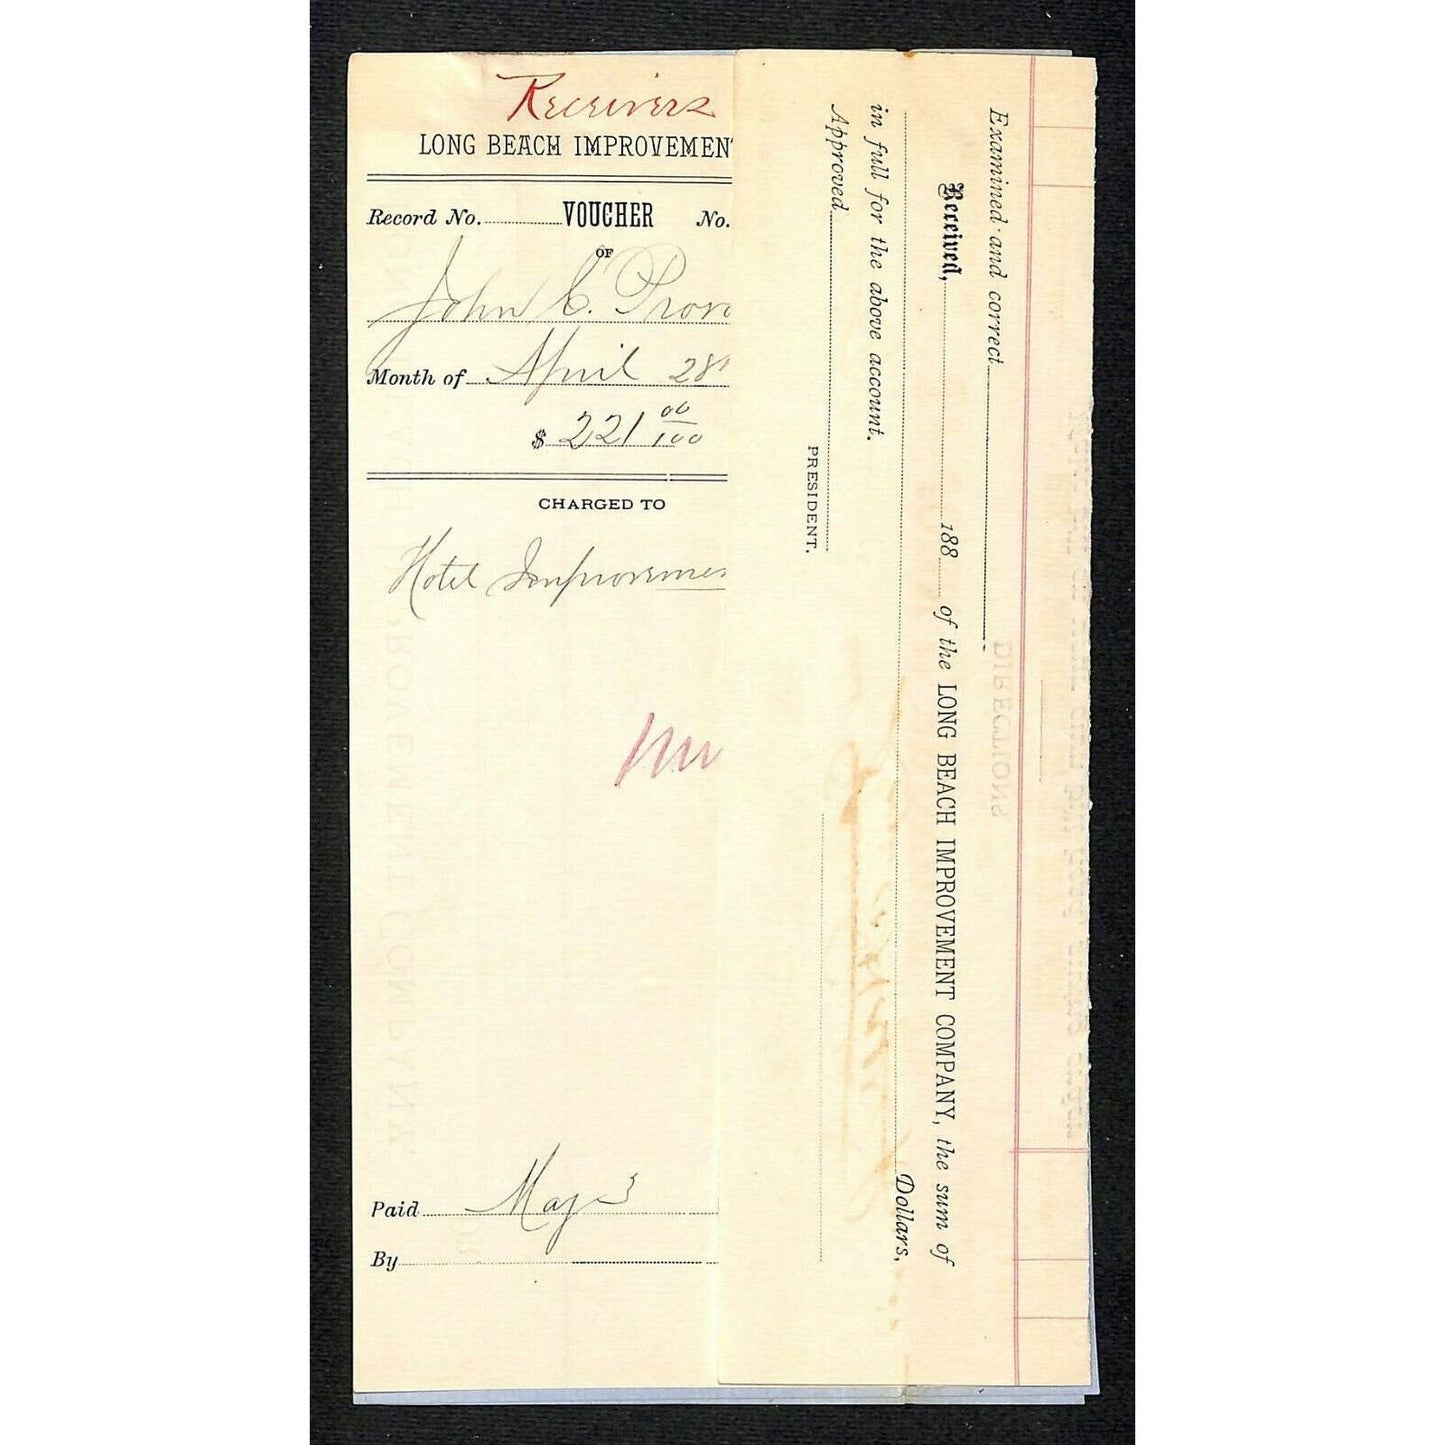 Receivers
LONG BEACH IMPROVEMEN
Record No. VOUCHER No.
OF
John C. Prov
Month of April 28
$ 221 00/100
CHARGED TO
Hotel Improvemen
Paid May 3
By
Examined and correct
Received, 188 of the LONG BEACH IMPROVEMENT COMPANY, the sum of
Dollars,
in full for the above account.
Approved
PRESIDENT.
DIRECTIONS
LONG BEACH IMPROVEMENT COMPANY